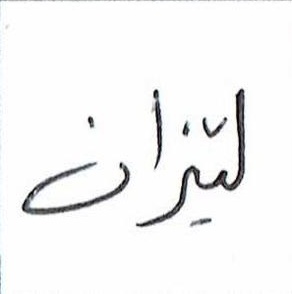 ليزان